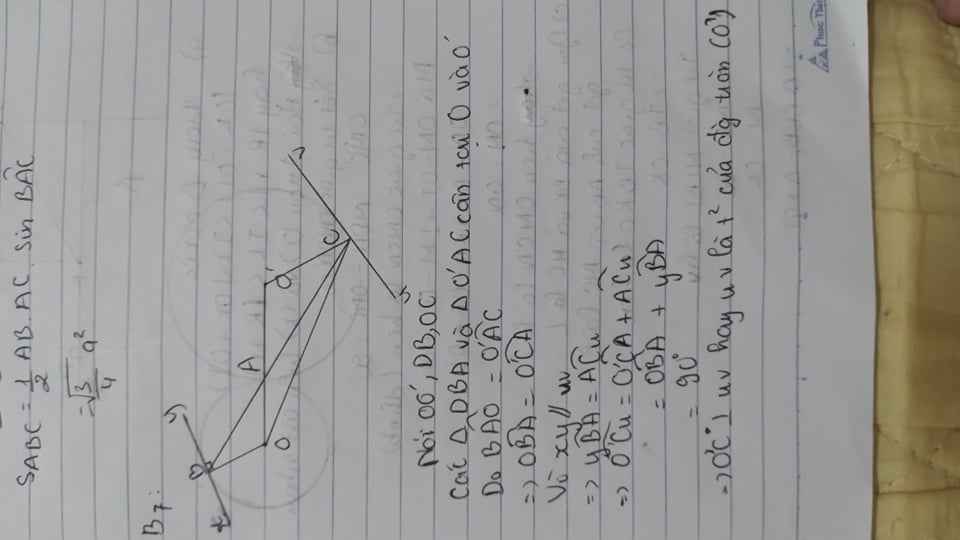 SABC = 1/2 AB.AC. sin BÂC
= √3/4 a²
B7:
x
B
y
O
A
O'
C
v
u
Nối OO', OB, OC
Các △ OBA và △ O'AC cân tại O và O'
Do BÂO = O'ÂC
=> OB̂A = O'ĈA
Vì xy // uv
=> yB̂A = AĈu
=> O'Ĉu = O'ĈA + AĈu
= OB̂A + yB̂A
= 90°
=> O'C ⊥ uv hay uv là t² của đg tròn (O')
Phuc Thin